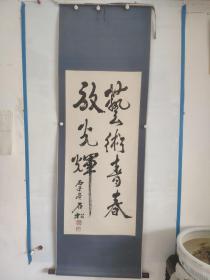 藝術青春
放光輝